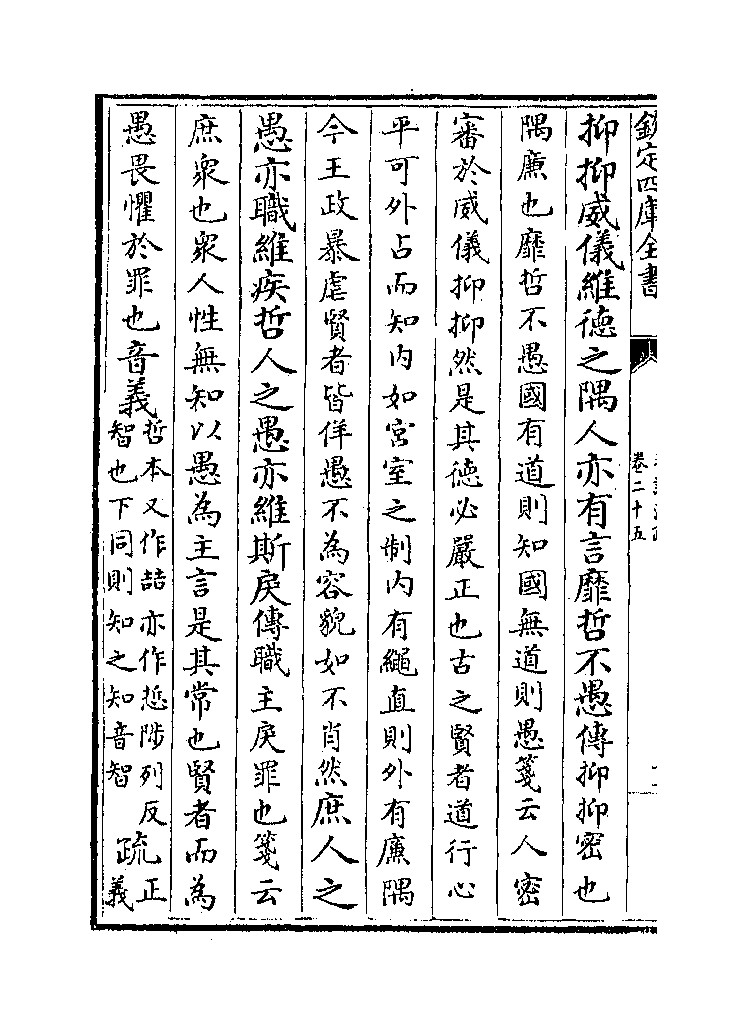 欽定四庫全書
卷二十五
抑抑威儀維德之隅人亦有言靡哲不愚傳抑抑密也
隅廉也靡哲不愚國有道則知國無道則愚箋云人密
審於威儀抑抑然是其德必嚴正也古之賢者道行心
平可外占而知内如宮室之制内有繩直則外有廉隅
今王政暴虐賢者皆佯愚不為容貌如不肖然庶人之
愚亦職維疾哲人之愚亦維斯戾傳職主戾罪也箋云
庶衆也衆人性無知以愚為主言是其常也賢者而為
愚畏懼於罪也音義哲本又作喆亦作悊陟列反智也下同則知之知音智疏正義